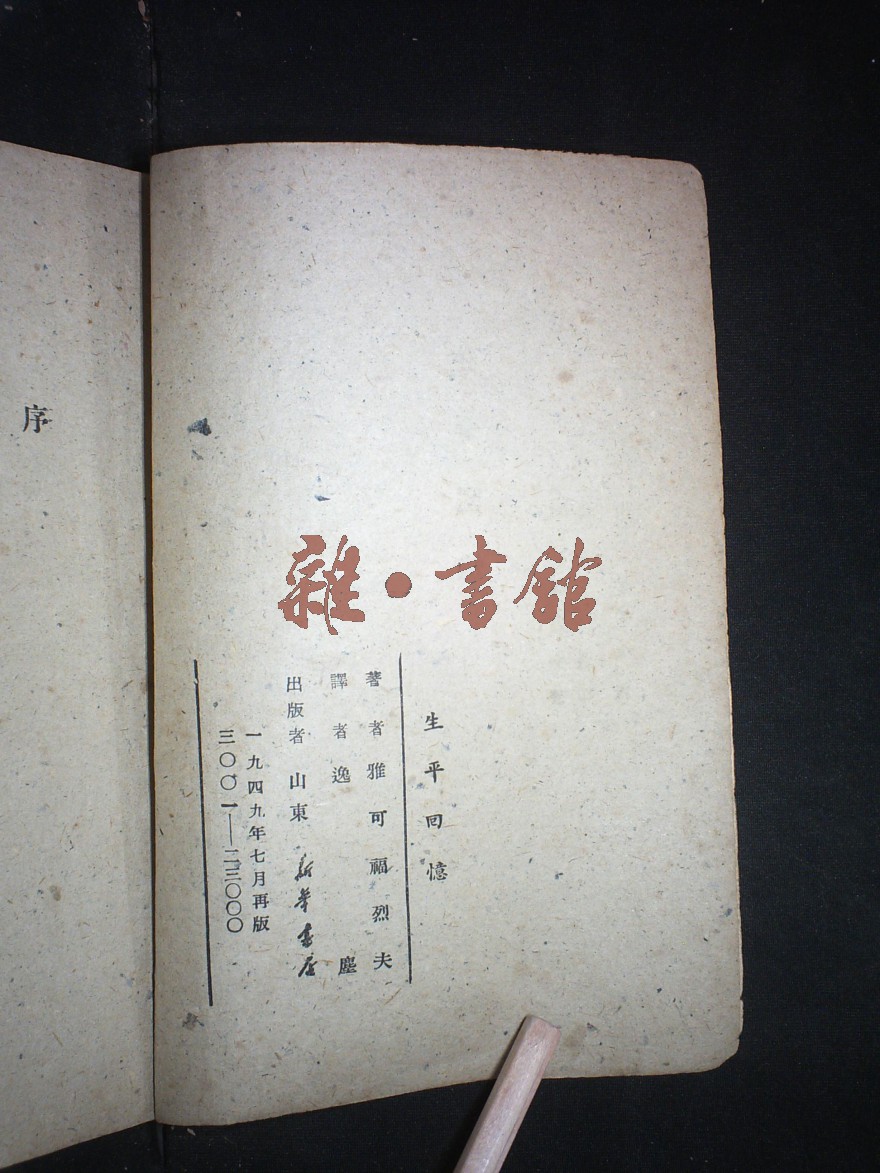 雜·書館
生平回憶
著者雅可福烈夫
譯者逸塵
出版者山東新華書店
一九四九年七月再版
三〇〇一——二三〇〇〇
序